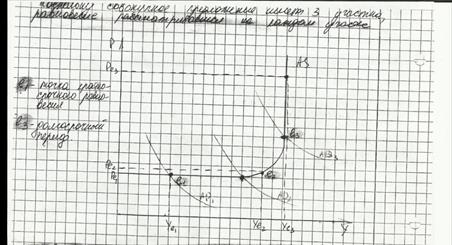 совокупное предложение имеет 3 участка,
равновесие рассматривается на каждом участке
P
AS
Pe₃
e₁ - точка кратко-
срочного равно-
весия
e₃ - долгосрочный
период.
e₃
AD₃
Pe₂
Pe₁
e₁
e₂
AD₁
AD₂
Ye₁
Ye₂
Ye₃
Y